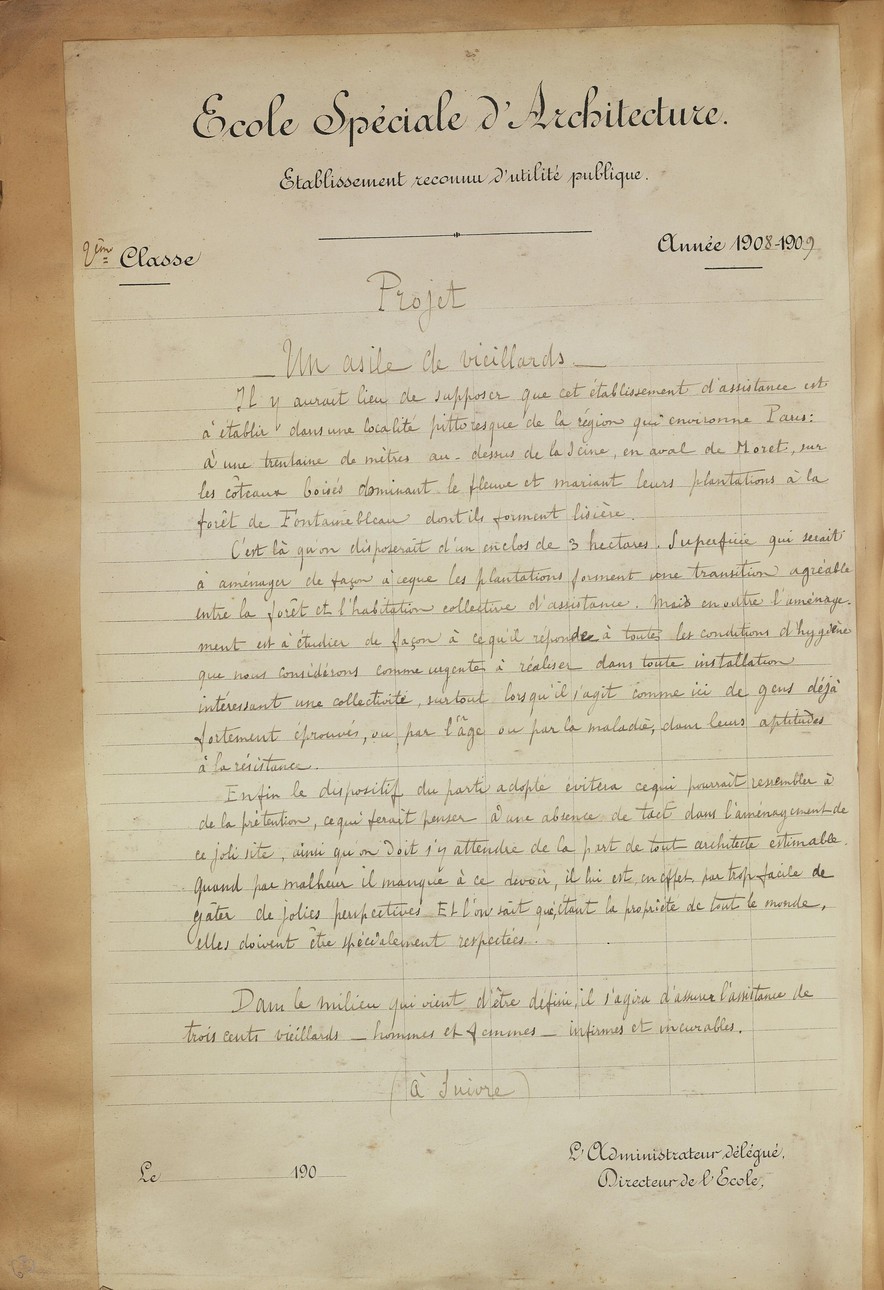 Ecole Spéciale d'Architecture.
Etablissement reconnu d'utilité publique.
2ème Classe
Année 1908-1909
Projet
— Un asile de vieillards —
Il y aurait lieu de supposer que cet établissement d'assistance est
à établir dans une localité pittoresque de la région qui environne Paris:
à une trentaine de mètres au-dessus de la Seine, en aval de Moret, sur
les côteaux boisés dominant le fleuve et mariant leurs plantations à la
forêt de Fontainebleau dont ils forment lisière.
C'est là qu'on disposerait d'un enclos de 3 hectares. Superficie qui serait
à aménager de façon à ce que les plantations forment une transition agréable
entre la forêt et l'habitation collective d'assistance. Mais en outre l'aménage-
ment est à étudier de façon à ce qu'il réponde à toutes les conditions d'hygiène
que nous considérons comme urgentes à réaliser dans toute installation
intéressant une collectivité, surtout lorsqu'il s'agit comme ici de gens déjà
fortement éprouvés, ou par l'âge ou par la maladie, dans leurs aptitudes
à la résistance.
Enfin le dispositif du parti adopté évitera ce qui pourrait ressembler à
de la prétention, ce qui ferait penser à une absence de tact dans l'aménagement de
ce joli site, ainsi qu'on doit s'y attendre de la part de tout architecte estimable.
Quand par malheur il manque à ce devoir, il lui est, en effet, par trop facile de
gâter de jolies perspectives. Et l'on sait qu'étant la propriété de tout le monde,
elles doivent être spécialement respectées.
Dans le milieu qui vient d'être défini, il s'agira d'assurer l'assistance de
trois cents vieillards — hommes et femmes — infirmes et incurables.
(à Suivre)
L'Administrateur délégué,
Le 190
Directeur de l'Ecole,